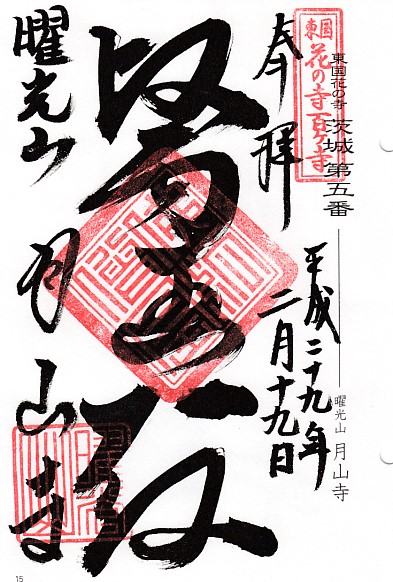 東国花の寺 茨城 第五番
曜光山 月山寺
東国
花の寺百ヶ寺
奉拝
平成二十九年
二月十九日
曜光山
月山寺
15